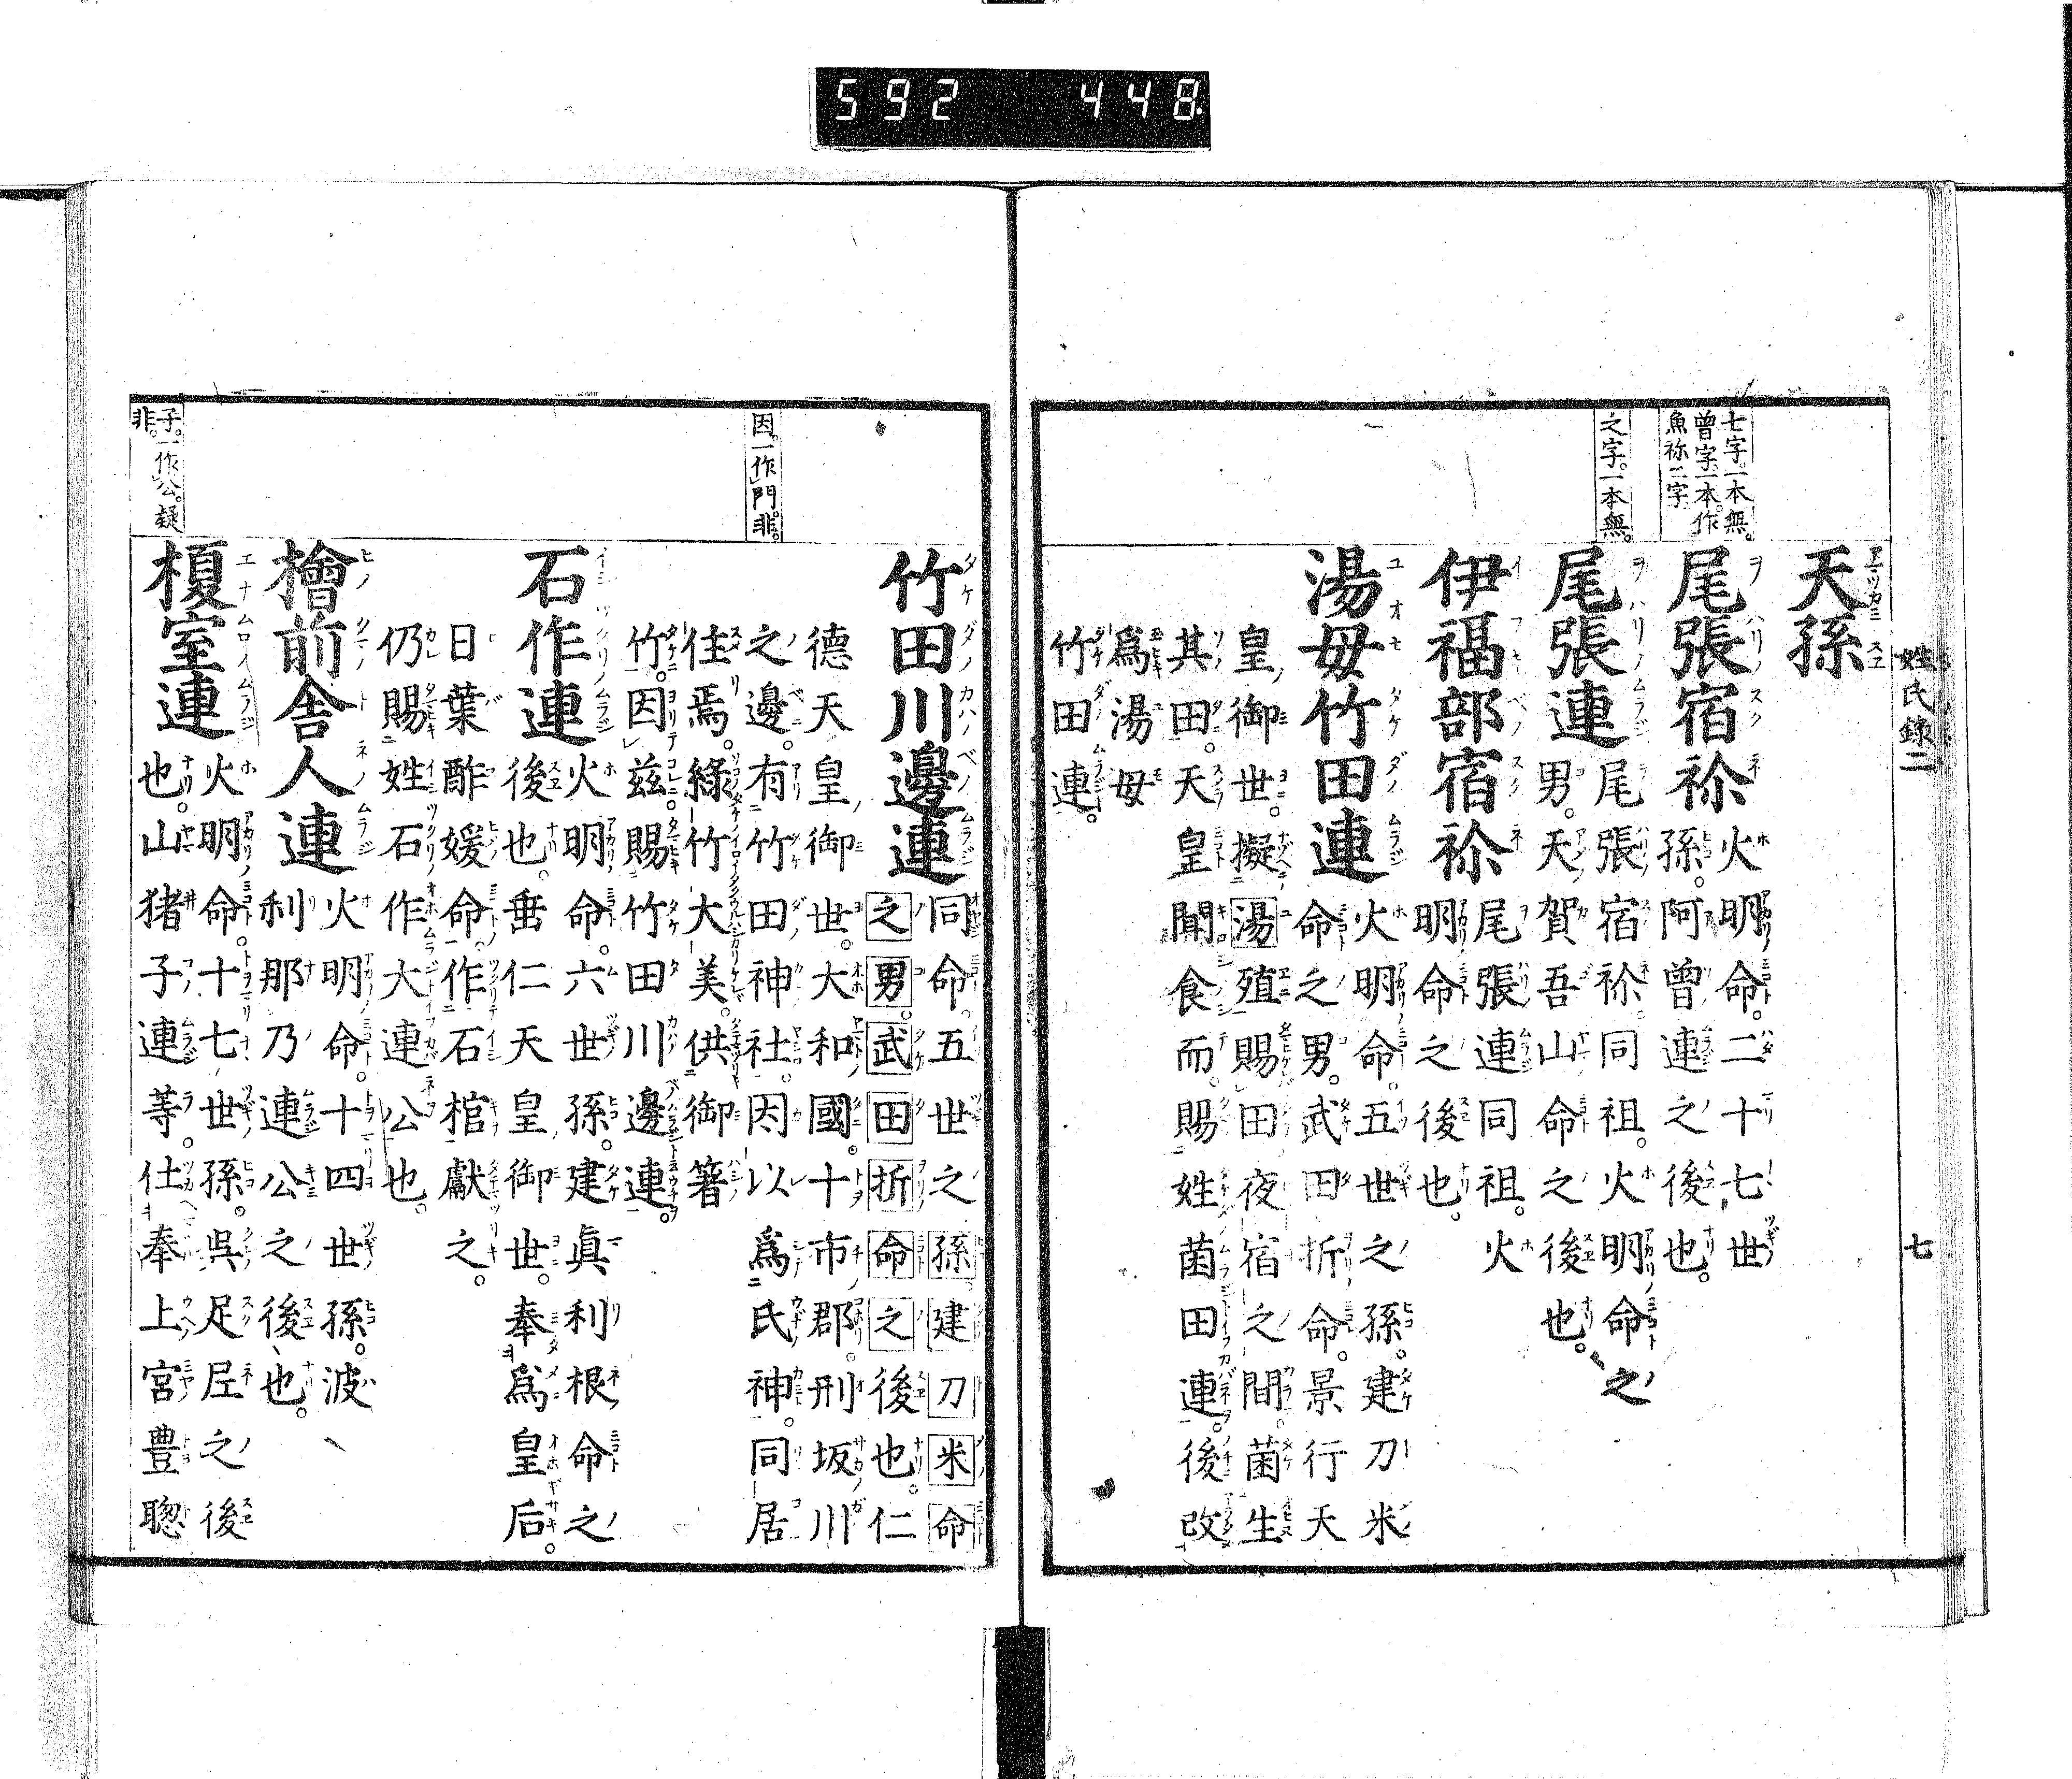 592 448
姓氏錄二
七
七字一本無。
曾字。一本作
魚祢二字
之字。一本無。
天孫
尾張宿祢
火明命。二十七世
孫。阿曾連之後也。
尾張連
尾張宿祢。同祖。火明命之
男。天賀吾山命之後也。
伊福部宿祢
尾張連同祖。火
明命之後也。
湯毋竹田連
火明命。五世之孫。建刀米
命之男。武田折命。景行天
皇御世。擬湯殖賜田夜宿之間。菌生
其田。天皇聞食而。賜姓菌田連。後改
爲湯毋
竹田連。
因。一作門。非。
子。一作公。疑
非。
竹田川邊連
同命。五世之孫建刀米命
之男。武田折命之後也。仁
德天皇御世。大和國十市郡。刑坂川
之邊。有竹田神社。因以爲氏神。同居
住焉。綠竹大美。供御箸
竹。因茲。賜竹田川邊連。
石作連
火明命。六世孫。建眞利根命之
後也。垂仁天皇御世。奉爲皇后。
日葉酢媛命。作石棺獻之。
仍賜姓石作大連公也。
檜前舎人連
火明命。十四世孫。波
利那乃連公之後也。
榎室連
火明命。十七世孫。呉足尼之後
也。山猪子連等。仕奉上宮豊聦